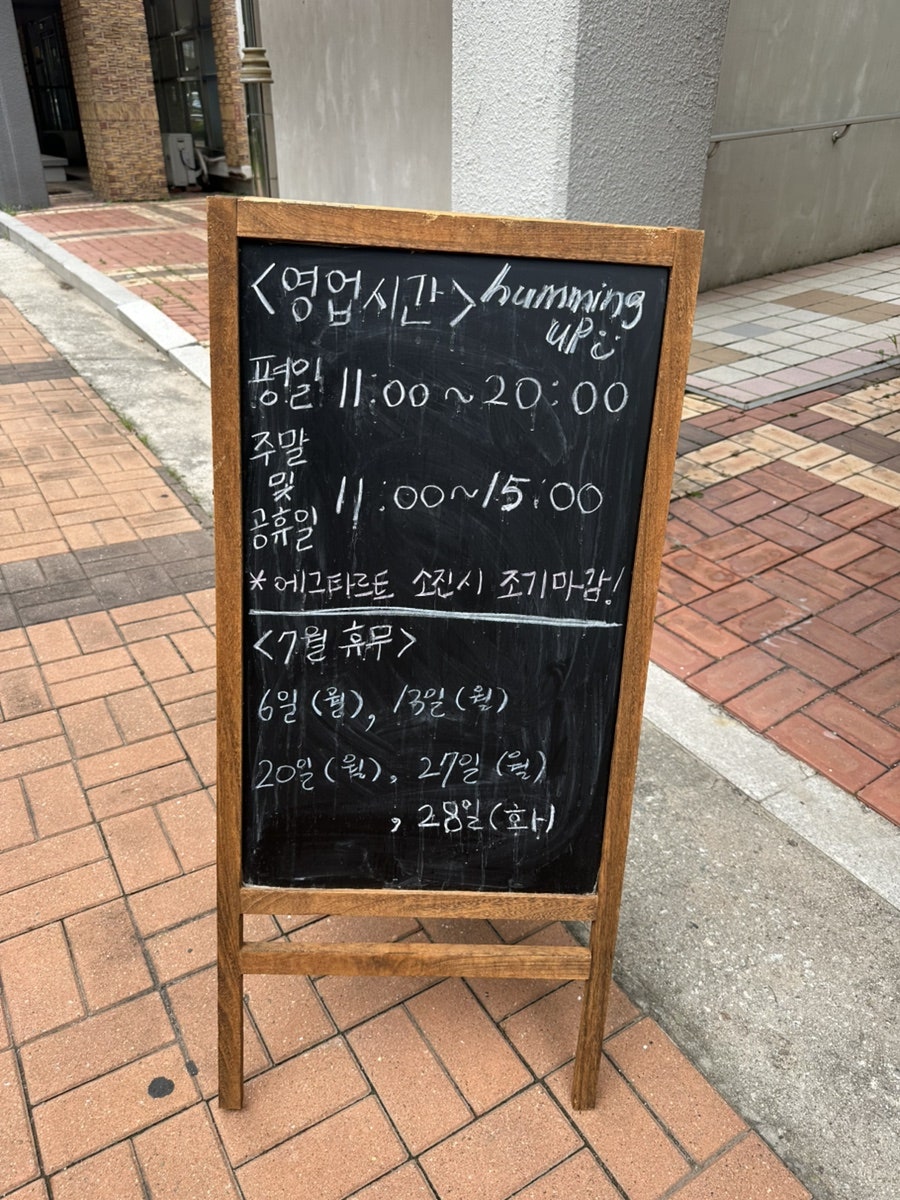 <영업시간> humming
up
평일 11:00 ~ 20:00
주말
및 11:00~15:00
공휴일
*에그타르트 소진시 조기마감!
<7월 휴무>
6일(월), 13일(월)
20일(월), 27일(월)
, 28일(화)